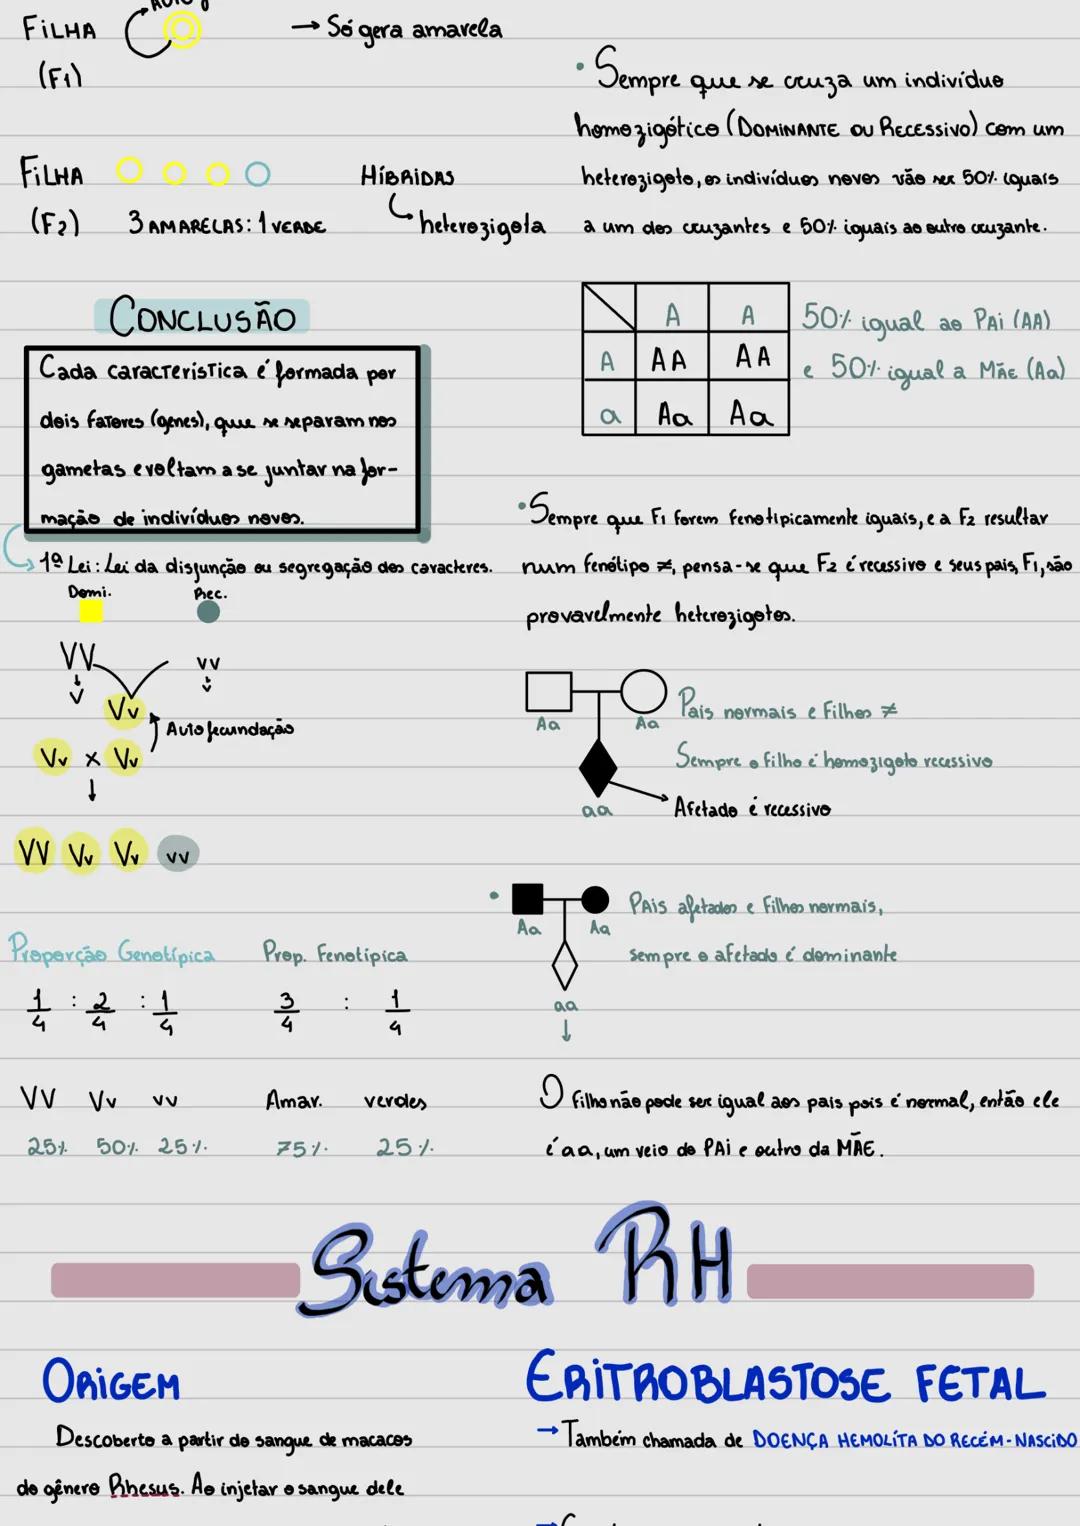 FILHA
(F1)
→ Só gera amarela
FILHA
(F2)
3 AMARELAS: 1 VERDE
HÍBRIDAS
heterozigota
CONCLUSÃO
Cada característica é formada por
dois fatores (genes), que se separam nos
gametas e voltam a se juntar na for-
mação de indivíduos novos.
1ª Lei: Lei da disjunção ou segregação dos caracteres.
Domi. Rec.
VV vv
v v
Vv
Autofecundação
Vv x Vv
VV Vv Vv vv
Proporção Genotípica Prop. Fenotípica
1/4 : 2/4 : 1/4 3/4 : 1/4
VV Vv vv Amar. verdes
25% 50% 25% 75% 25%
• Sempre que se cruza um indivíduo
homozigótico (DOMINANTE OU RECESSIVO) com um
heterozigoto, os indivíduos novos vão ser 50% iguais
a um dos cruzantes e 50% iguais ao outro cruzante.
A A
A AA AA
a Aa Aa
50% igual ao PAi (AA)
e 50% igual a MÃE (Aa)
• Sempre que F1 forem fenotipicamente iguais, e a F2 resultar
num fenótipo ≠, pensa-se que F2 é recessivo e seus pais, F1, são
provavelmente heterozigotos.
Aa Aa
Pais normais e Filhos ≠
Sempre o filho é homozigoto recessivo
aa
Afetado é recessivo
Aa Aa
PAis afetados e Filhos normais,
sempre o afetado é dominante
aa
O filho não pode ser igual aos pais pois é normal, então ele
é aa, um veio do PAi e outro da MÃE.
Sistema RH
ORIGEM
Descoberto a partir do sangue de macacos
do gênero Rhesus. Ao injetar o sangue dele
ERITROBLASTOSE FETAL
→ Também chamada de DOENÇA HEMOLÍTA DO RECÉM-NASCIDO